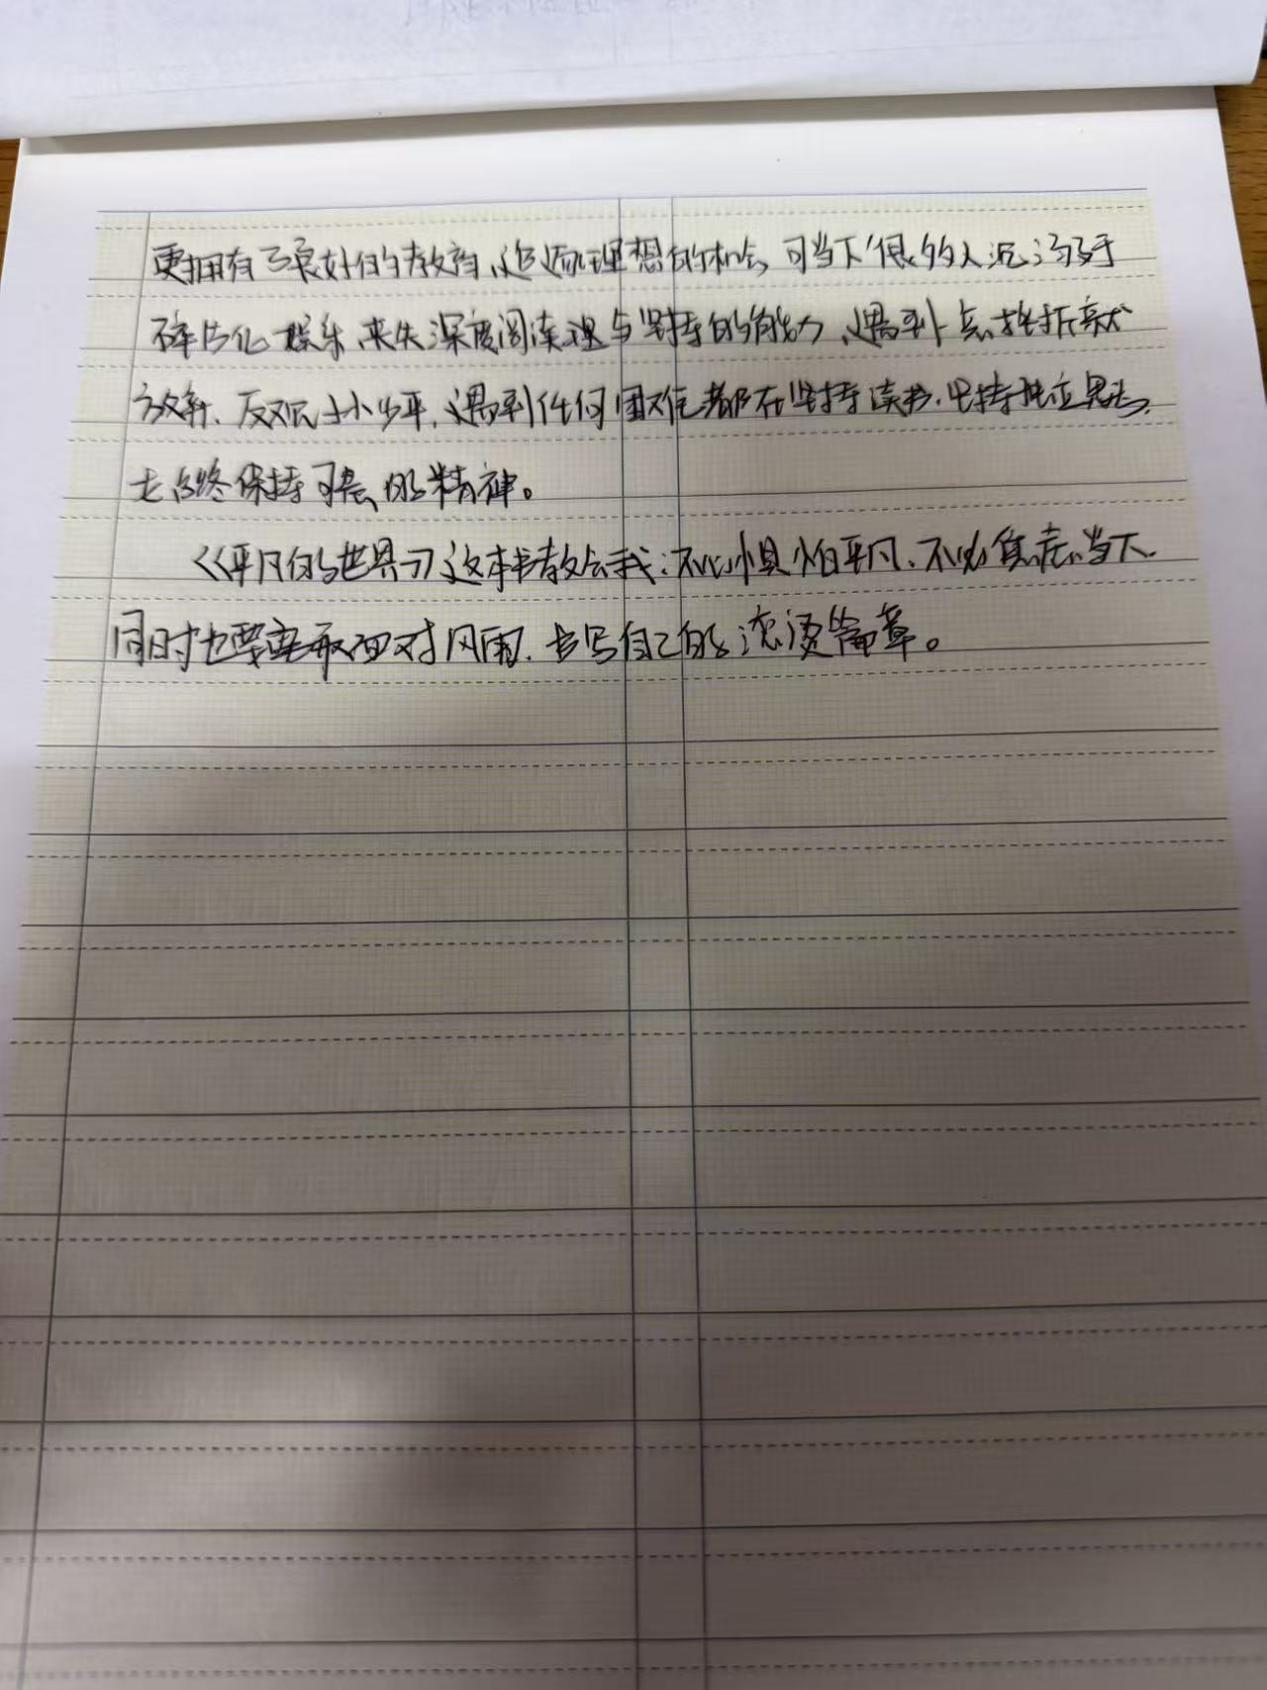 更拥有了良好的教育、追逐理想的机会，可当下很多人沉溺于
碎片化娱乐，丧失深度阅读与坚持的能力，遇到点挫折就
放弃，反观孙少平，遇到任何困难都在坚持读书，坚持独立思考，
始终保持可贵的精神。
《平凡的世界》这本书教会我：不必惧怕平凡，不必焦虑当下，
同时也要敢面对风雨，书写自己的滚烫篇章。